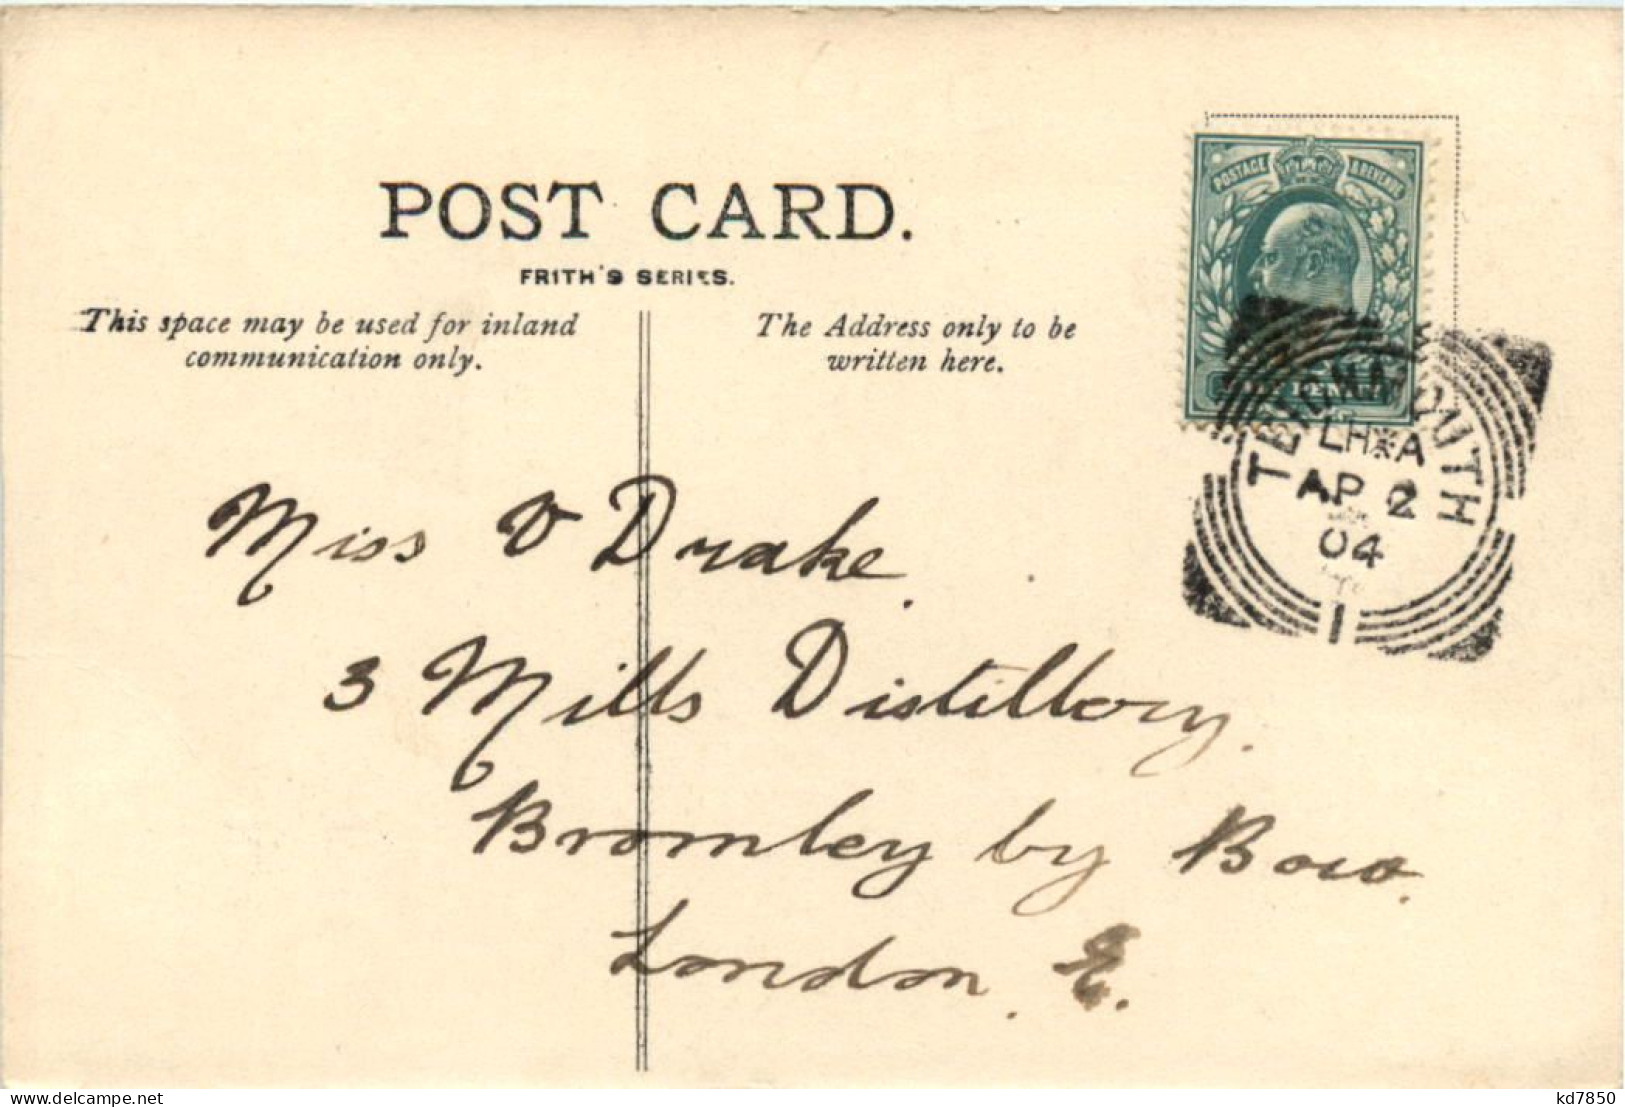 POST CARD.
FRITH'S SERIES.
This space may be used for inland
communication only.
The Address only to be
written here.
POSTAGE & REVENUE
HALF PENNY
TEIGNMOUTH
LH*A
AP 2
04
1
Miss V Drake.
3 Mills Distillery.
Bromley by Bow.
London. E.
delcampe.net
kd7850